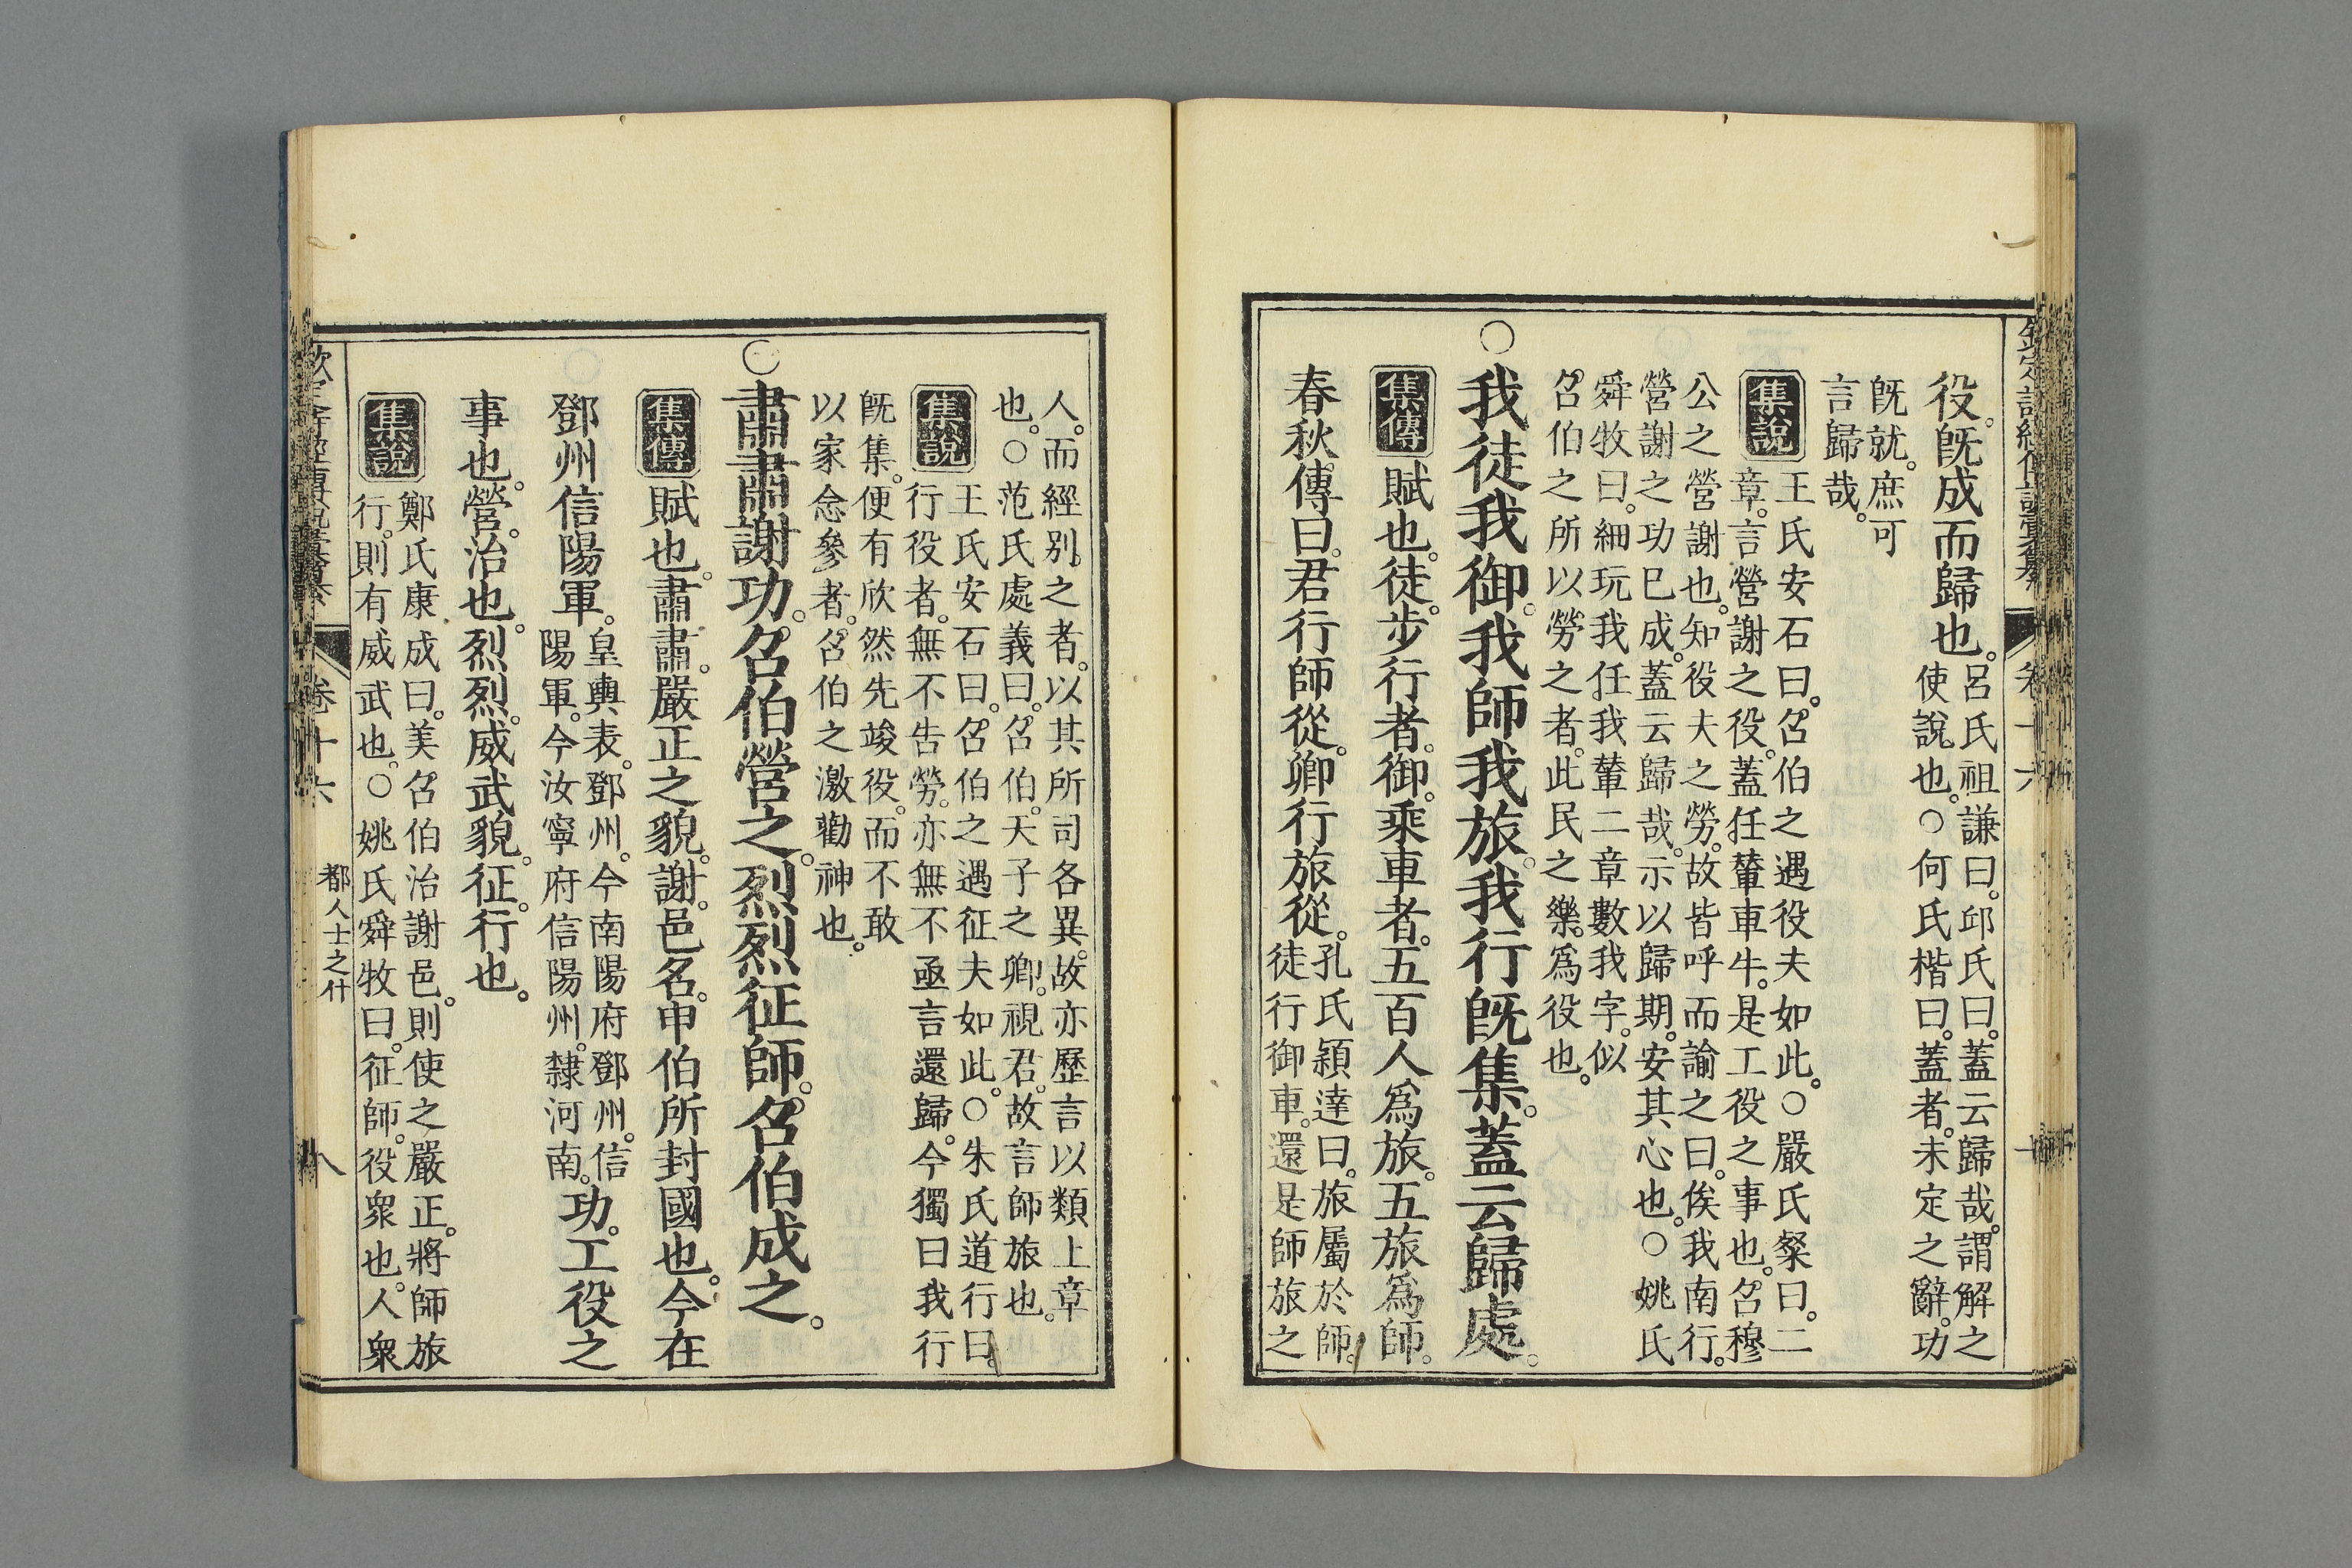 役。旣成而歸也。呂氏祖謙曰。邱氏曰。蓋云歸哉。謂解之
使說也。○何氏楷曰。蓋者。未定之辭。功
旣就。庶可
言歸哉。
集說 王氏安石曰。召伯之遇役夫如此。○嚴氏粲曰。二
章。言營謝之役。蓋任輦車牛。是工役之事也。召穆
公之營謝也。知役夫之勞。故皆呼而諭之曰。俟我南行。
營謝之功已成。蓋云歸哉。示以歸期。安其心也。○姚氏
舜牧曰。細玩我任我輦二章數我字。似
召伯之所以勞之者。此民之樂。爲役也。
○我徒我御。我師我旅。我行旣集。蓋云歸處。
集傳 賦也。徒。步行者。御。乘車者。五百人爲旅。五旅爲師。
春秋傳曰。君行師從。卿行旅從。孔氏穎達曰。旅屬於師。
徒行御車。還是師旅之
人。而經別之者。以其所司各異。故亦歷言以類上章
也。○范氏處義曰。召伯。天子之卿。視君。故言師旅也。
集說 王氏安石曰。召伯之遇征夫如此。○朱氏道行曰。
行役者。無不告勞。亦無不亟言還歸。今獨曰我行
旣集。便有欣然先竣役。而不敢
以家念參者。召伯之激勸神也。
○肅肅謝功。召伯營之。烈烈征師。召伯成之。
集傳 賦也。肅肅。嚴正之貌。謝。邑名。申伯所封國也。今在
鄧州信陽軍。皇輿表。鄧州。今南陽府鄧州。信
陽軍。今汝寧府信陽州。隸河南。功。工役之
事也。營。治也。烈烈。威武貌。征。行也。
集說 鄭氏康成曰。美召伯治謝邑。則使之嚴正。將師旅
行。則有威武也。○姚氏舜牧曰。征師。役衆也。人衆
卷十六
都人士之什
八